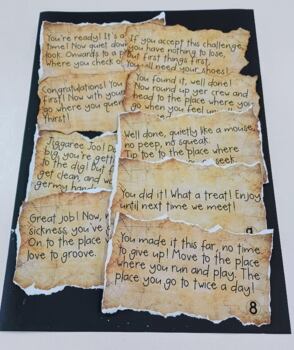 You're ready! It's a
time! Now quiet down
look. Onwards to a p
where you check o
If you accept this challenge,
you have nothing to lose,
but first things first,
you'll need your shoes!
Congratulations! You
first! Now with your
go where you quen
thirst!
You found it, well done!
Now round up yer crew and
head to the place where you
go when you feel un
Jiggaree Joo! Do
big, you're gett
to the dig! But
get clean, and w
germy hand
Well done, quietly like a mouse,
no peep, no squeak.
Tip toe to the place where
seek.
You did it! What a treat! Enjoy
until next time we meet!
Great job! Now,
sickness, you've
On to the place w
love to groove.
You made it this far, no time
to give up! Move to the place
where you run and play. The
place you go to twice a day!
8